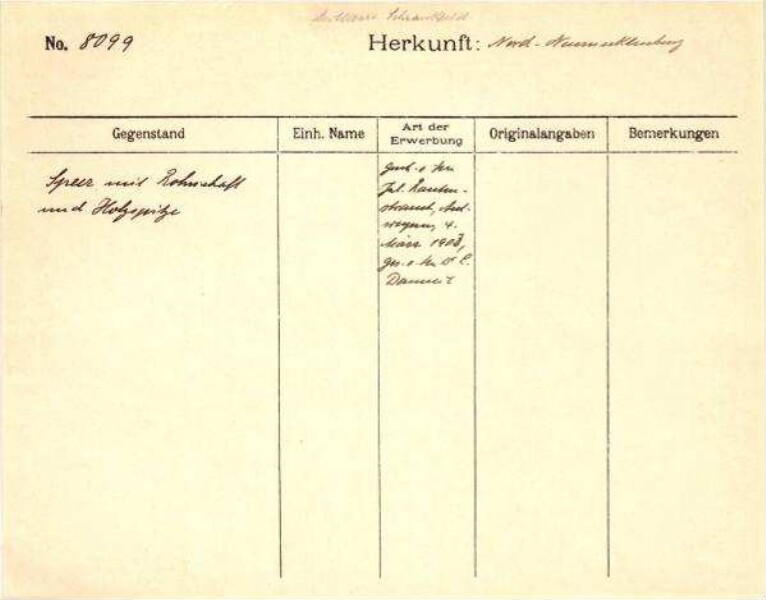 Schrankfeld
No. 8099
Herkunft: Nord-Neumecklenburg
Gegenstand
Einh. Name
Art der Erwerbung
Originalangaben
Bemerkungen
Speer mit Rohrschaft
und Holzspitze
Gesch. v. Hrn
Jul. Rauten-
strauch, Ant-
werpen, 4.
März 1903,
ges. v. Hrn Dr E.
Danneil